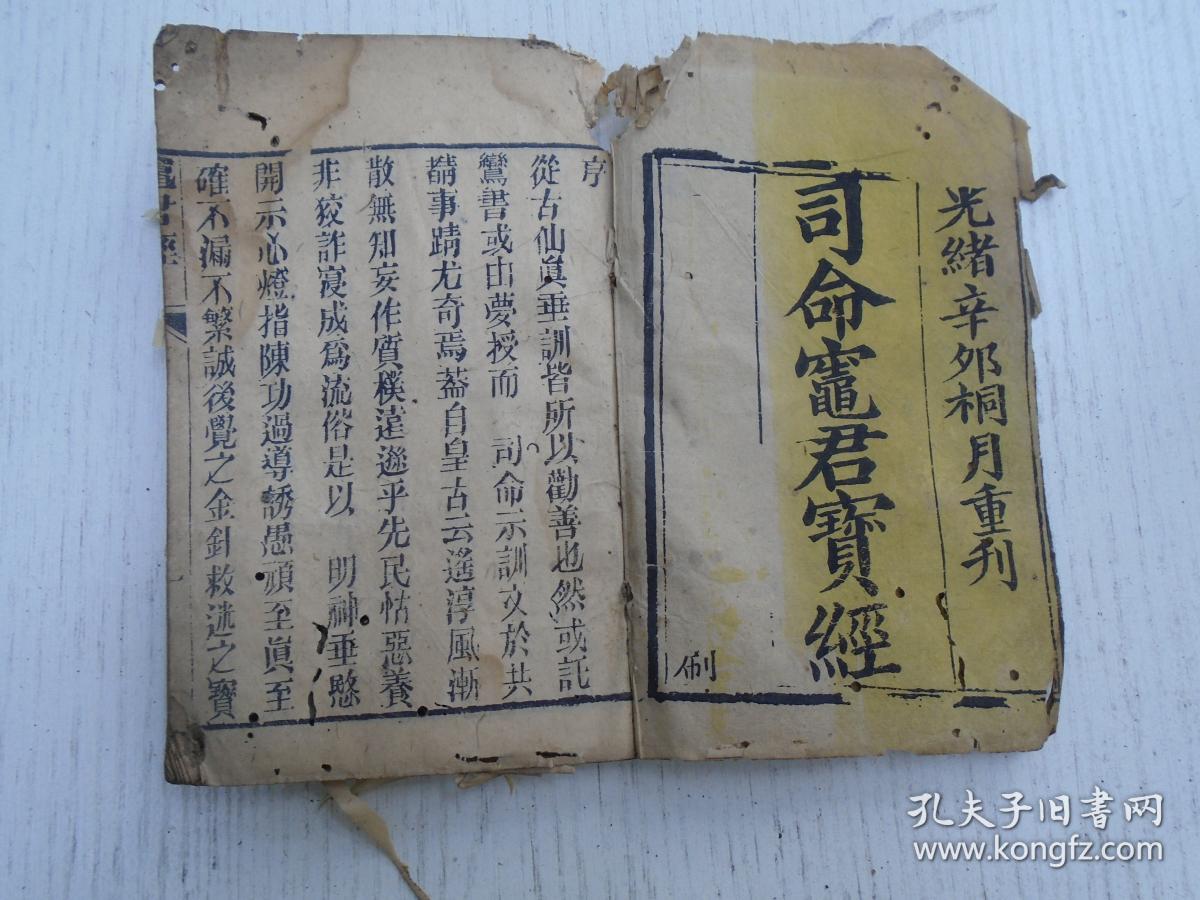 光緒辛夘桐月重刋
司命竈君寶經
序
從古仙眞垂訓皆所以勸善也然或託
鸞書或由夢授而 司命示訓文於共
覩事蹟尤奇焉葢自皇古云遙淳風漸
散無知妄作質樸遠遜乎先民怙惡養
非狡詐寖成爲流俗是以 明神垂愍
開示心燈指陳功過導誘愚頑至眞至
確不漏不繁誠後覺之金針救迷之寶
竈君經
孔夫子旧书网
www.kongfz.com